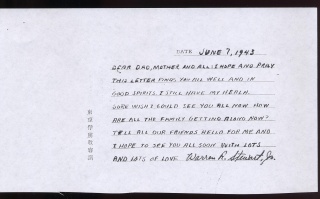 DATE JUNE 7, 1943
DEAR DAD, MOTHER AND ALL: I HOPE AND PRAY
THIS LETTER FINDS YOU ALL WELL AND IN
GOOD SPIRITS. I STILL HAVE MY HEALH.
SURE WISH I COULD SEE YOU ALL NOW. HOW
ARE ALL THE FAMILY GETTING ALONG NOW?
TELL ALL OUR FRIENDS HELLO FOR ME AND
I HOPE TO SEE YOU ALL SOON. WITH LOTS
AND LOTS OF LOVE. Warren R. Stewart, Jr.